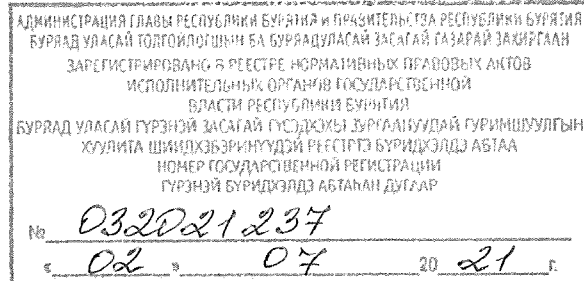 АДМИНИСТРАЦИЯ ГЛАВЫ РЕСПУБЛИКИ БУРЯТИЯ И ПРАВИТЕЛЬСТВА РЕСПУБЛИКИ БУРЯТИЯ
БУРЯАД УЛАСАЙ ТОЛГОЙЛОГШЫН БА БУРЯАДУЛАСАЙ ЗАСАГАЙ ГАЗАРАЙ ЗАХИРГААН
ЗАРЕГИСТРИРОВАНО В РЕЕСТРЕ НОРМАТИВНЫХ ПРАВОВЫХ АКТОВ
ИСПОЛНИТЕЛЬНЫХ ОРГАНОВ ГОСУДАРСТВЕННОЙ
ВЛАСТИ РЕСПУБЛИКИ БУРЯТИЯ
БУРЯАД УЛАСАЙ ГҮРЭНЭЙ ЗАСАГАЙ ГҮЙСЭДХЭХЫ ЗУРГААНУУДАЙ ГУРИМШУУЛГЫН
ХУУЛИТА ШИИДХЭБЭРИНҮҮДЭЙ РЕЕСТРТЭ БҮРИДХЭЛДЭ АБТАА
НОМЕР ГОСУДАРСТВЕННОЙ РЕГИСТРАЦИИ
ГҮРЭНЭЙ БҮРИДХЭЛДЭ АБТАҺАН ДУГААР
№ 032021237
« 02 » 07 20 21 г.